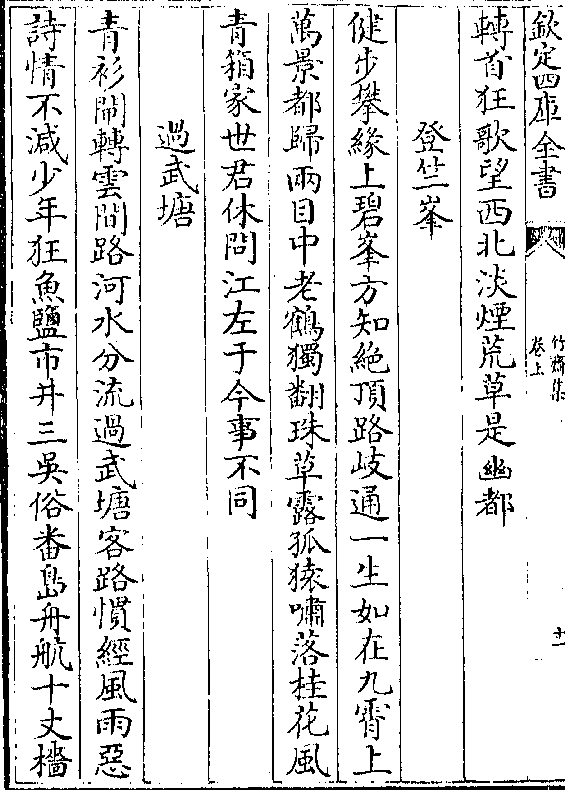 欽定四庫全書
竹齋集
卷上
十一
轉首狂歌望西北淡煙荒草是幽都
登竺峯
健步攀緣上碧峯方知絶頂路岐通一生如在九霄上
萬景都歸兩目中老鶴獨翻珠草露孤猿嘯落桂花風
青箱家世君休問江左于今事不同
過武塘
青衫鬧轉雲間路河水分流過武塘客路慣經風雨惡
詩情不減少年狂魚鹽市井三吳俗番島舟航十丈檣